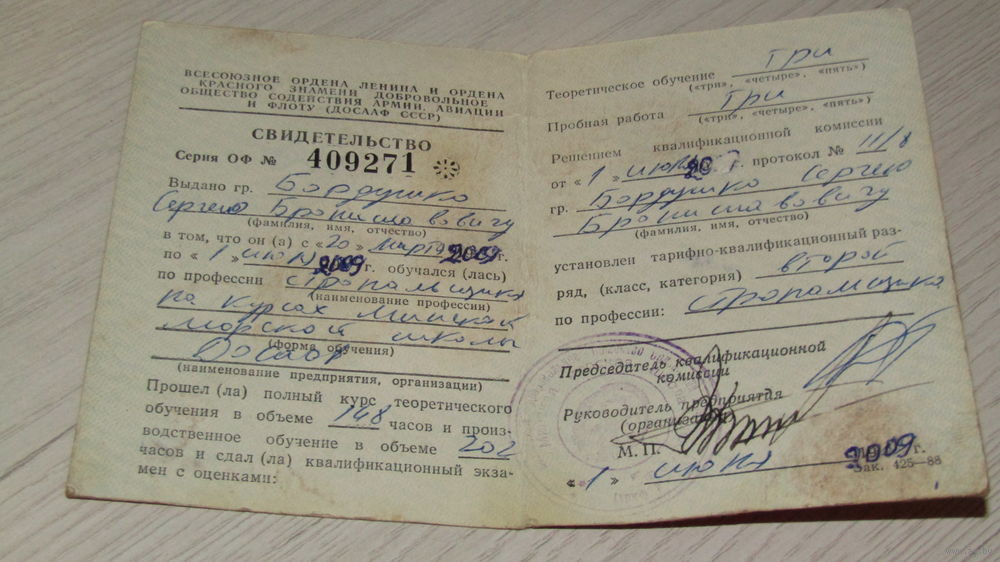 ВСЕСОЮЗНОЕ ОРДЕНА ЛЕНИНА И ОРДЕНА
КРАСНОГО ЗНАМЕНИ ДОБРОВОЛЬНОЕ
ОБЩЕСТВО СОДЕЙСТВИЯ АРМИИ, АВИАЦИИ
И ФЛОТУ (ДОСААФ СССР)
СВИДЕТЕЛЬСТВО
Серия ОФ № 409271
Выдано гр. Бордушко
Сергею Брониславовичу
(фамилия, имя, отчество)
в том, что он (а) с «20» марта 2009 г.
по «1» июня 2009 г. обучался (лась)
по профессии стропальщика
(наименование профессии)
на курсах Минской
морской школы
(форма обучения)
ДОСААФ
(наименование предприятия, организации)
Прошел (ла) полный курс теоретического
обучения в объеме 148 часов и произ-
водственное обучение в объеме 202
часов и сдал (ла) квалификационный экза-
мен с оценками:
Теоретическое обучение три
(«три», «четыре», «пять»)
Пробная работа три
(«три», «четыре», «пять»)
Решением квалификационной комиссии
от «1» июня г. протокол № 11/8
гр. Бордушко Сергею
Брониславовичу
(фамилия, имя, отчество)
установлен тарифно-квалификационный раз-
ряд, (класс, категория) второй
по профессии: стропальщика
Председатель квалификационной
комиссии
Руководитель предприятия
(организации)
М. П.
«1» июня 2009 г.
Зак. 425—88